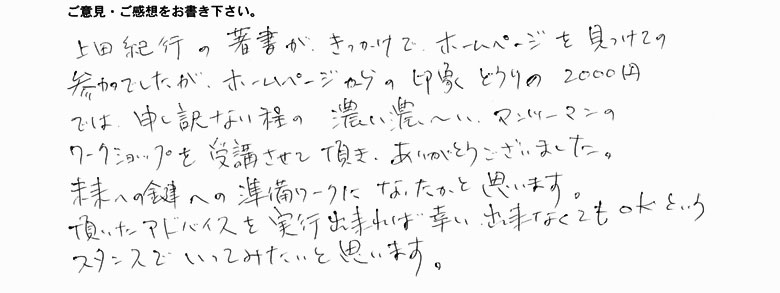 ご意見・ご感想をお書き下さい。
上田紀行の著書が、きっかけで、ホームページを見つけての
参加でしたが、ホームページからの印象どうりの2000円
では、申し訳ない程の濃い濃〜い、マンツーマンの
ワークショップを受講させて頂き、ありがとうございました。
未来への鍵への準備ワークになったかと思います。
頂いたアドバイスを実行出来れば幸い、出来なくてもokという
スタンスでいってみたいと思います。